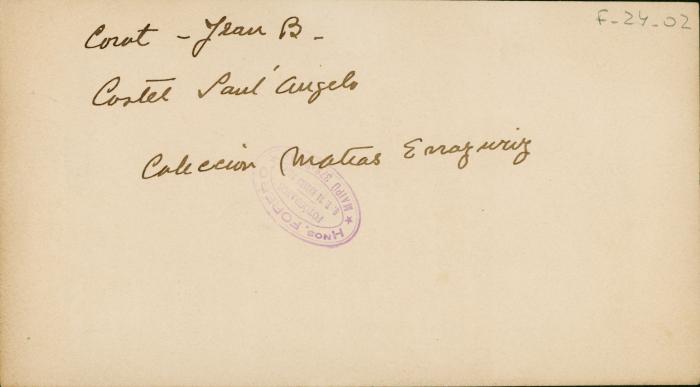 F-24-02
Corot - Jean B -
Castel Sant' Angelo
Colección Matias Errazuriz
HNOS. FORERO
MAIPU